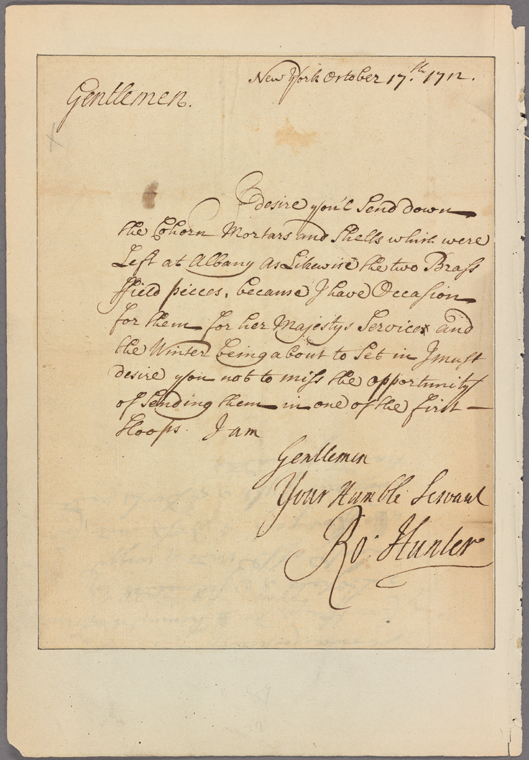 New York October 17.th 1712.
Gentlemen.
I desire you'l Send down
the Cohorn Mortars and Shells which were
Left at Albany as Likewise the two Brass
ffield pieces, because I have Occasion
for them for her Majestys Service and
the Winter being about to Set in I must
desire you not to miss the opportunity
of Sending them in one of the first
Sloops. I am
Gentlemen
Your Humble Servant
Ro: Hunter